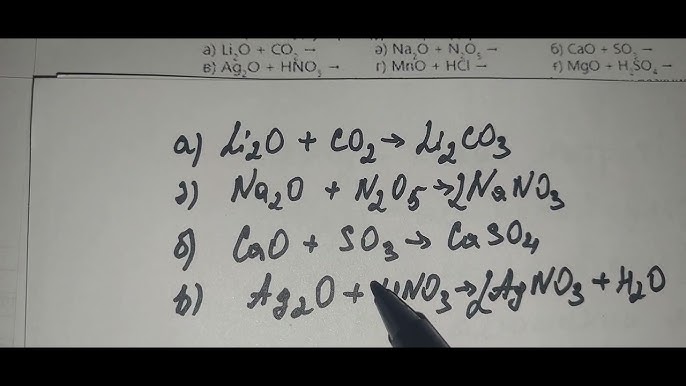 а) Li₂O + CO₂ → ә) Na₂O + N₂O₅ → б) CaO + SO₃ →
в) Ag₂O + HNO₃ → г) MnO + HCl → ғ) MgO + H₂SO₄ →
а) Li₂O + CO₂ → Li₂CO₃
ә) Na₂O + N₂O₅ → 2NaNO₃
б) CaO + SO₃ → CaSO₄
в) Ag₂O + HNO₃ → 2AgNO₃ + H₂O